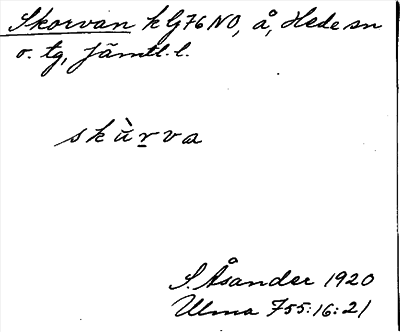 Skorvan k lj 76 NO, å, Hede sn
o. tg, Jämtl. l.
skùr̲va
S. Åsander 1920
Ulma 755:16:21